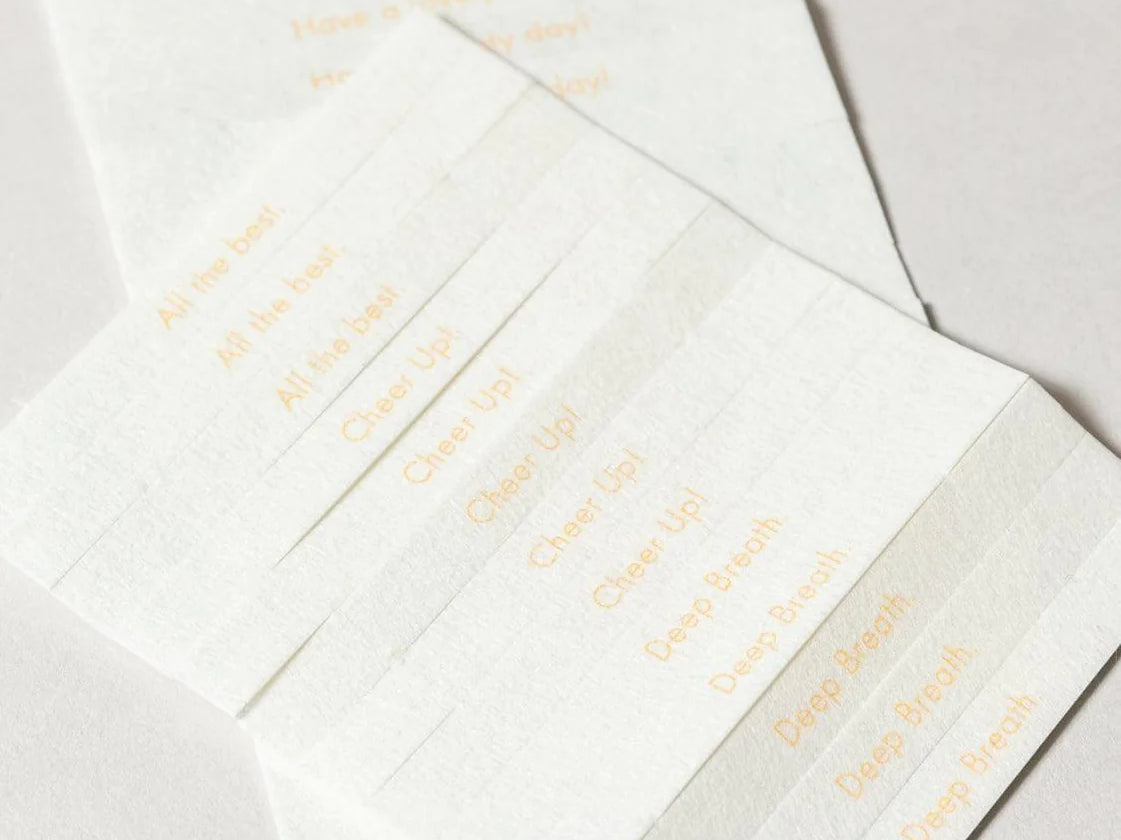 Have a
ly day!
day!
All the best.
All the best.
All the best.
Cheer Up!
Cheer Up!
Cheer Up!
Cheer Up!
Cheer Up!
Deep Breath.
Deep Breath.
Deep Breath.
Deep Breath.
Deep Breath.